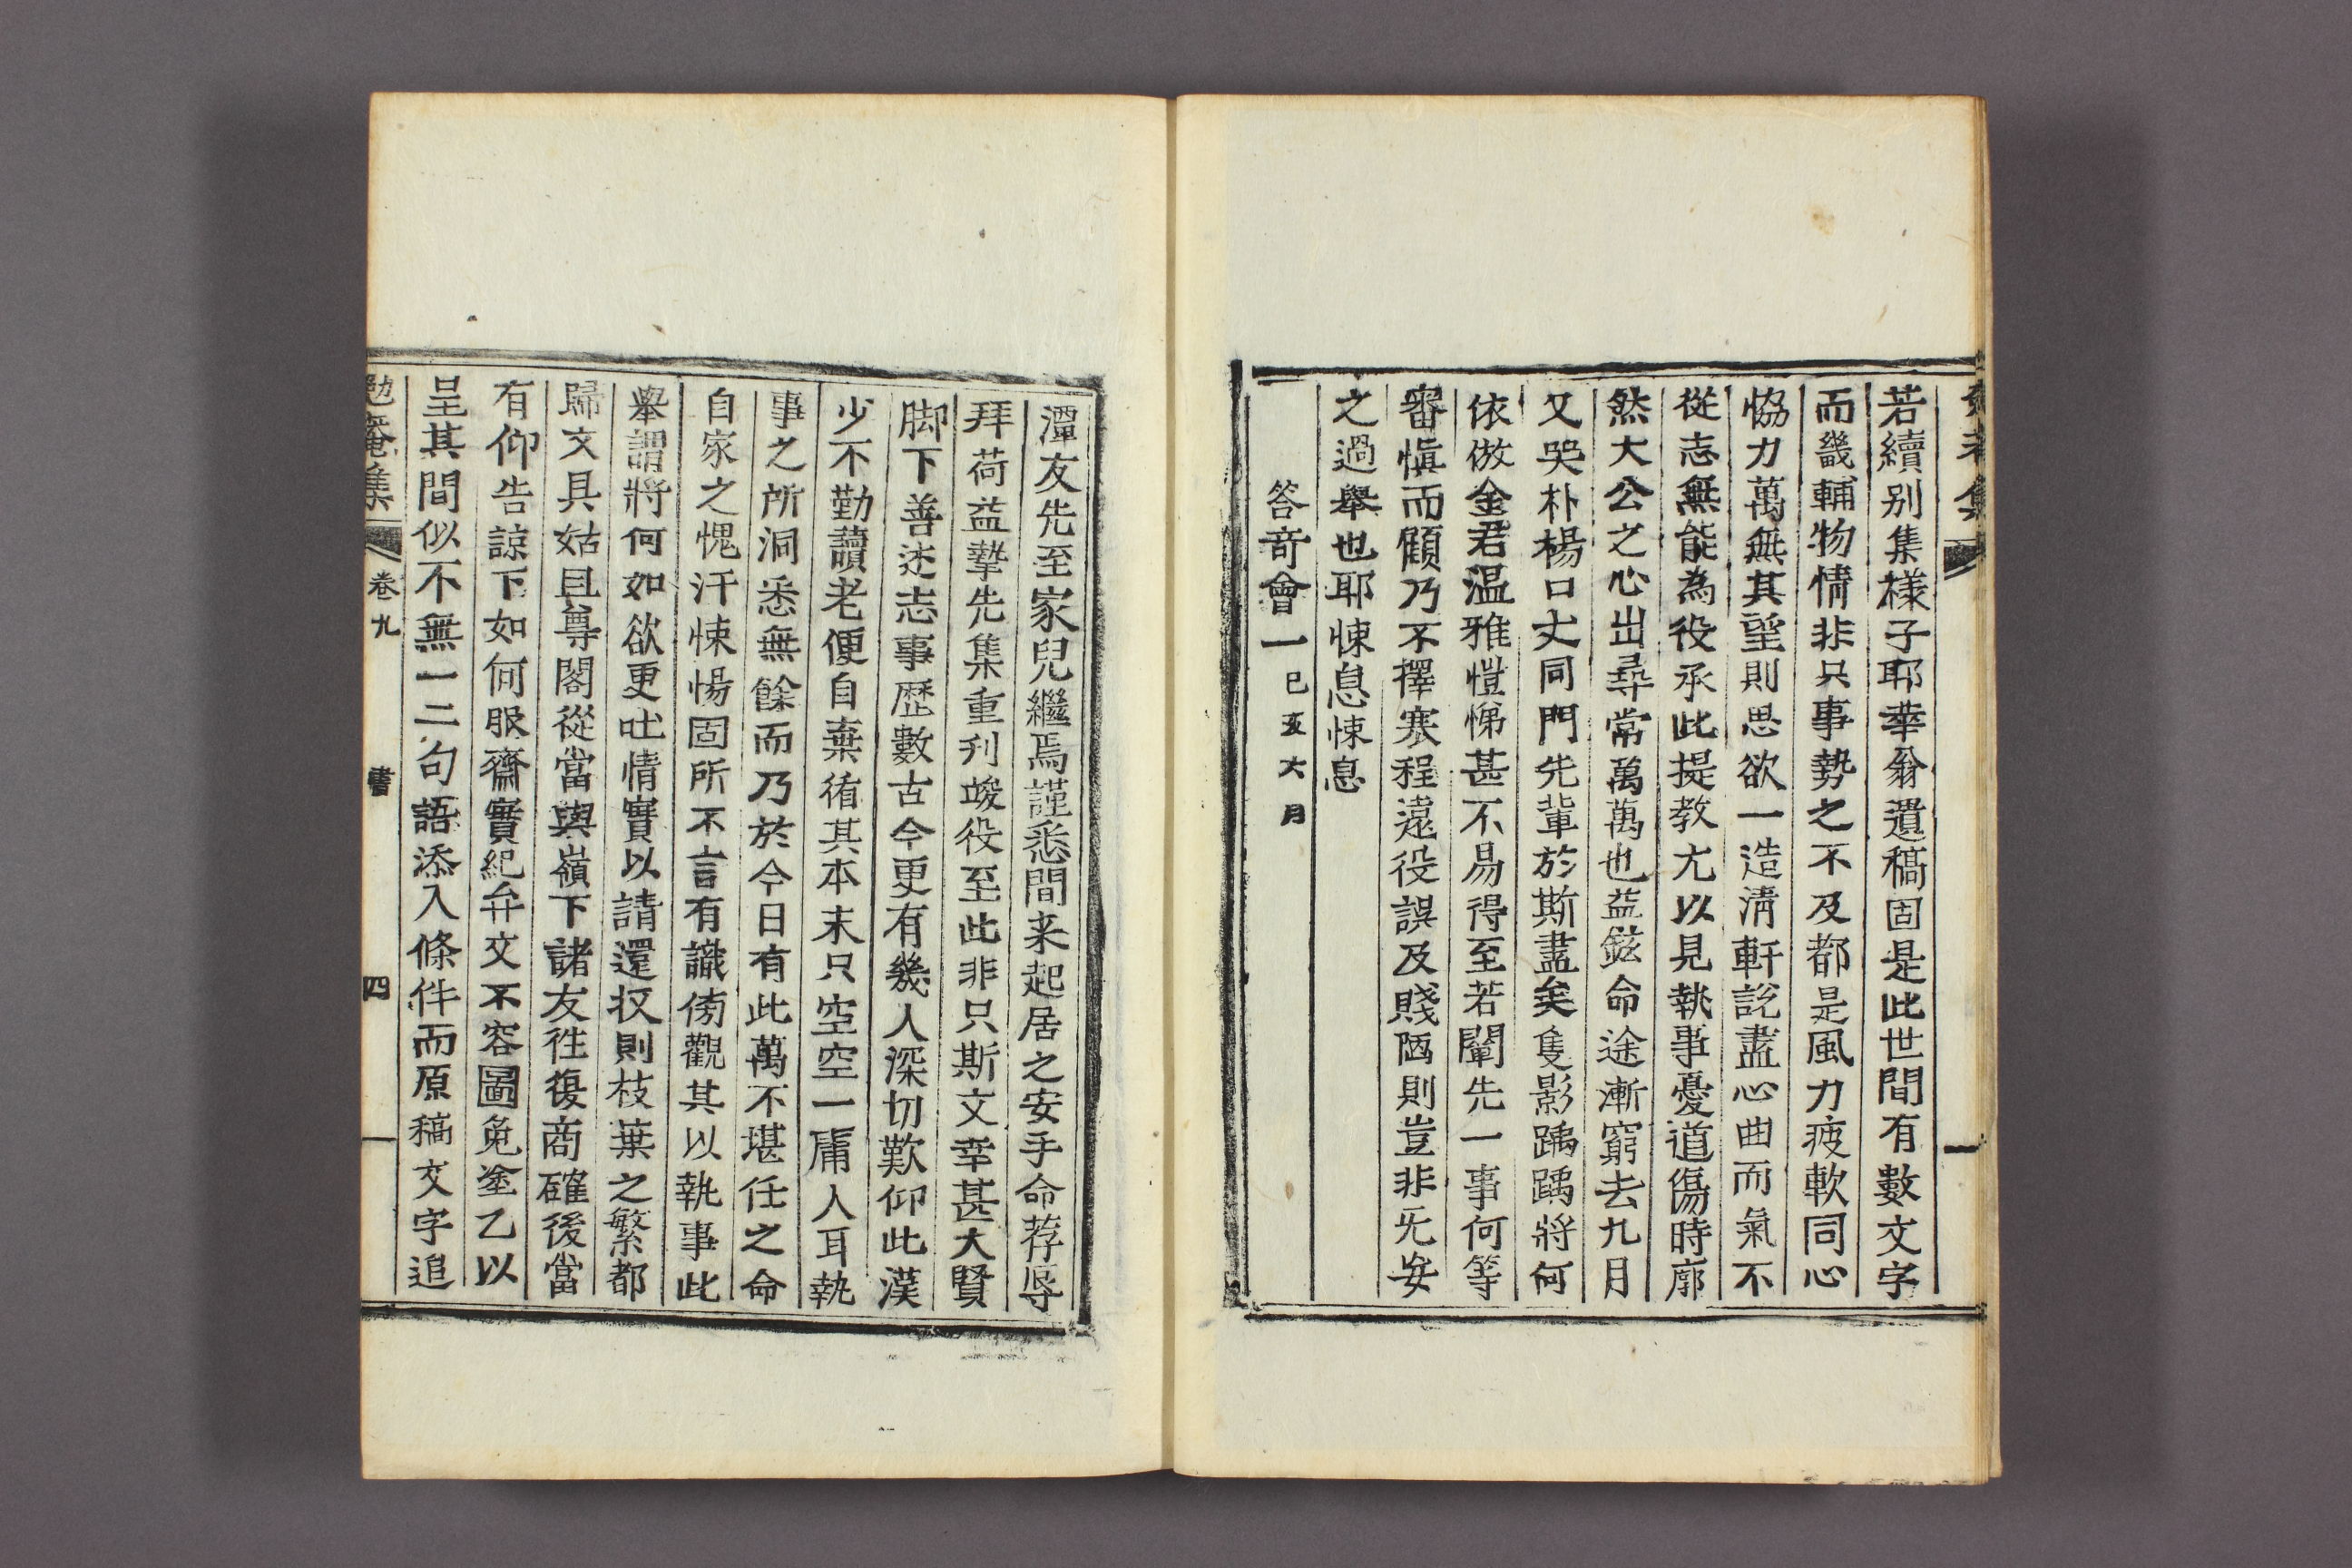 若續别集樣子耶華翁遺稿固是此世間有數文字
而畿輔物情非只事勢之不及都是風力疲軟同心
恊力萬無其望則思欲一造淸軒說盡心曲而氣不
從志無能為役承此提教尤以見執事憂道傷時廓
然大公之心出尋常萬萬也益鉉命途漸窮去九月
又哭朴楊口丈同門先輩於斯盡矣隻影踽踽將何
依倣金君温雅愷悌甚不易得至若闡先一事何等
審愼而顧乃不擇寒程遠役誤及賤陋則豈非旡妄
之過舉也耶悚息悚息
答竒會一 己亥六月
潭友先至家兒繼焉謹悉間来起居之安手命荐辱
拜荷益摯先集重刋竣役至此非只斯文幸甚大賢
脚下善述志事歷數古今更有幾人深切歎仰此漢
少不勤讀老便自棄循其本末只空空一庸人耳執
事之所洞悉無餘而乃於今日有此萬不堪任之命
自家之愧汗悚惕固所不言有識傍觀其以執事此
舉謂將何如欲更吐情實以請還扠則枝葉之繁都
歸文具姑且尊閣從當與嶺下諸友徃復商確後當
有仰告諒下如何服齋實紀弁文不容圖免塗乙以
呈其間似不無一二句語添入條件而原稿文字追
勉菴集 卷九 書 四